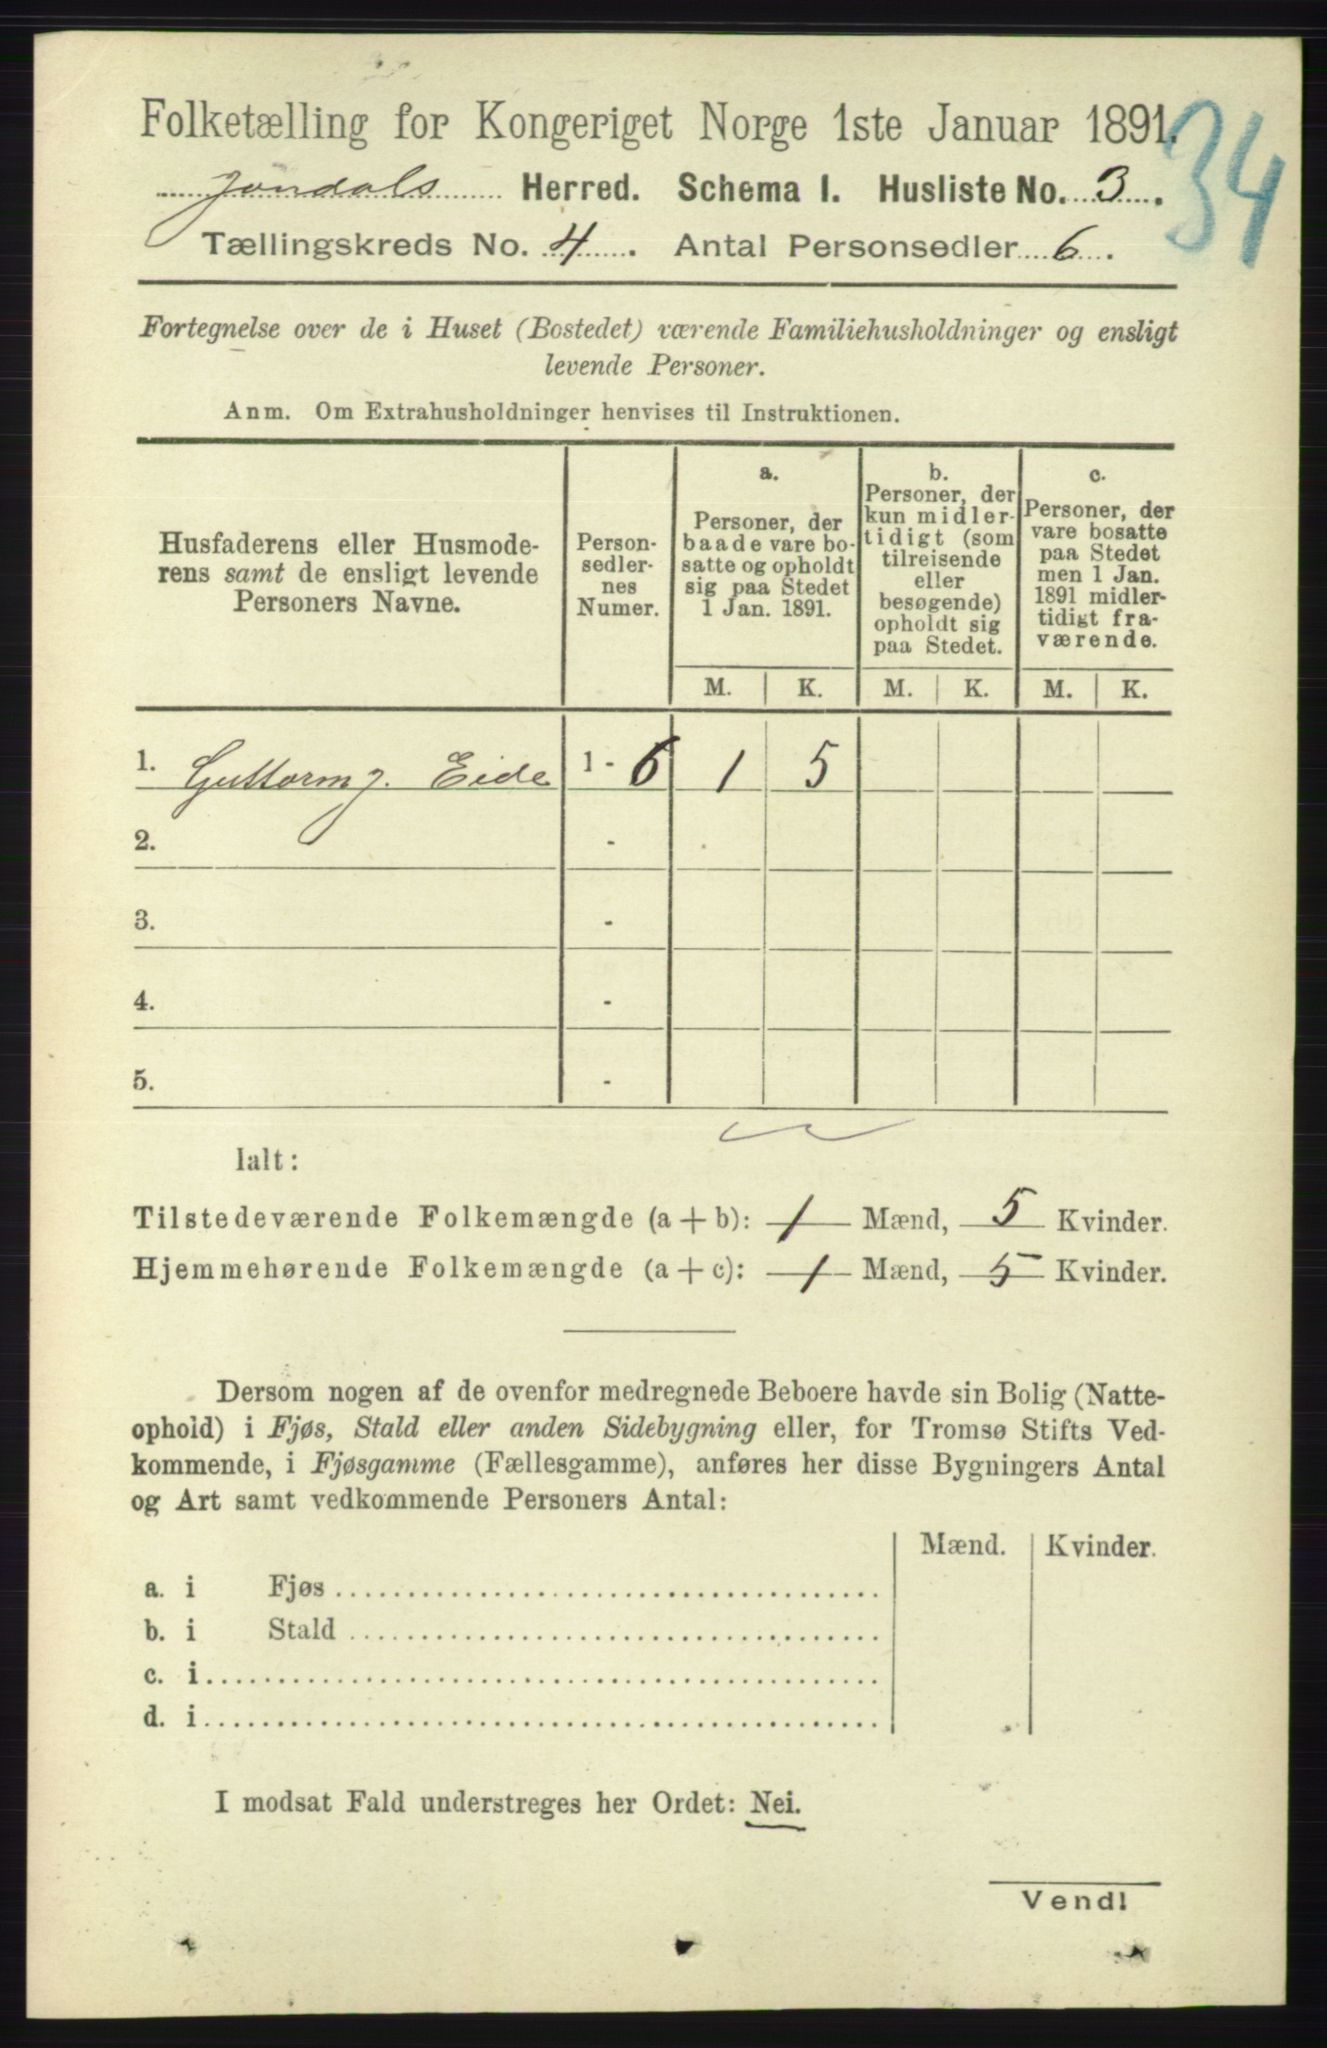 Folketælling for Kongeriget Norge 1ste Januar 1891.
34
Jondals Herred. Schema I. Husliste No. 3.
Tællingskreds No. 4. Antal Personsedler 6.
Fortegnelse over de i Huset (Bostedet) værende Familiehusholdninger og ensligt
levende Personer.
Anm. Om Extrahusholdninger henvises til Instruktionen.
Husfaderens eller Husmode-
rens samt de ensligt levende
Personers Navne.
Person-
sedler-
nes
Numer.
a.
Personer, der
baade vare bo-
satte og opholdt
sig paa Stedet
1 Jan. 1891.
b.
Personer, der
kun midler-
tidigt (som
tilreisende
eller
besøgende)
opholdt sig
paa Stedet.
c.
Personer, der
vare bosatte
paa Stedet
men 1 Jan.
1891 midler-
tidigt fra-
værende.
M. K. M. K. M. K.
1. Guttorm J. Eide 1 - 6 1 5
2. -
3. -
4. -
5. -
Ialt:
Tilstedeværende Folkemængde (a + b): 1 Mænd, 5 Kvinder.
Hjemmehørende Folkemængde (a + c): 1 Mænd, 5 Kvinder.
Dersom nogen af de ovenfor medregnede Beboere havde sin Bolig (Natte-
ophold) i Fjøs, Stald eller anden Sidebygning eller, for Tromsø Stifts Ved-
kommende, i Fjøsgamme (Fællesgamme), anføres her disse Bygningers Antal
og Art samt vedkommende Personers Antal:
Mænd. Kvinder.
a. i Fjøs
b. i Stald
c. i
d. i
I modsat Fald understreges her Ordet: Nei.
Vend!